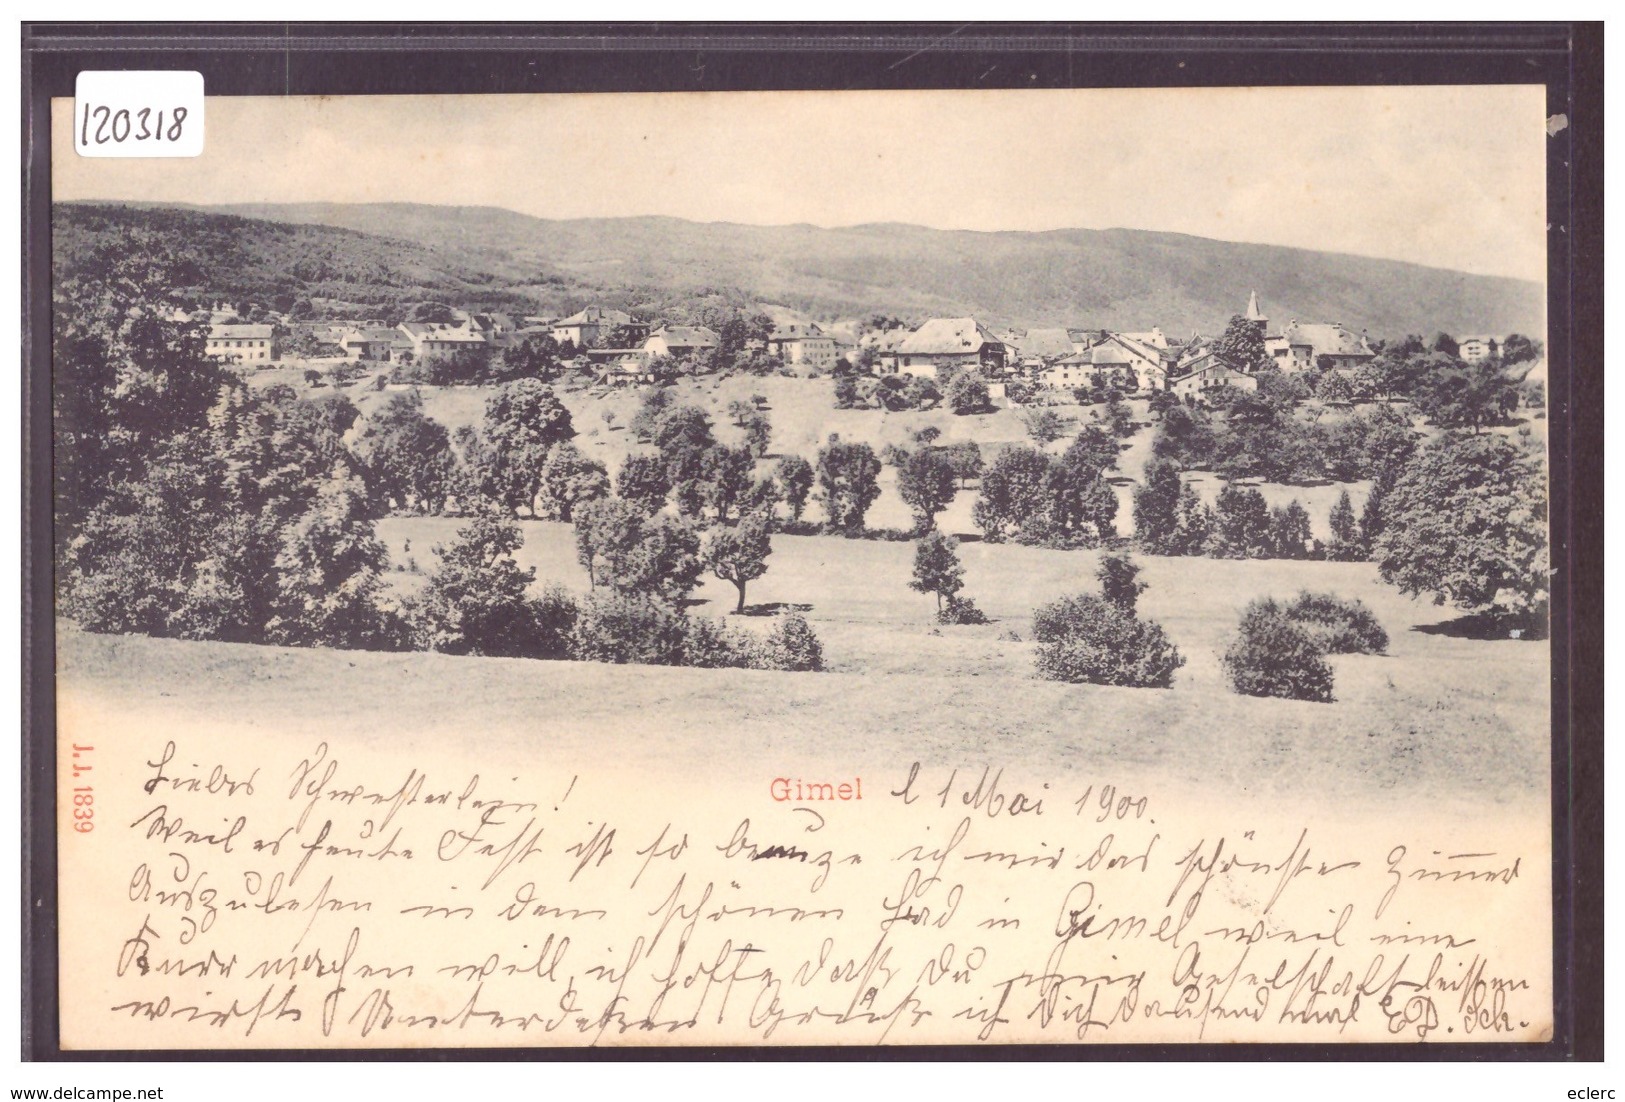 120318
J.J. 1839
Liebes Schwesterlein! Gimel d 1 Mai 1900.
Weil es heute Fest ist so benuze ich mir das schönste Zimmer
Auszulesen in dem schönen Bad in Gimel weil eine
Kurr machen will, ich hoffe daß Du mir Geselschaft leisten
wirst Unterdeßen Grüßt ich Dich Tausend mal Sch.
www.delcampe.net
eclerc